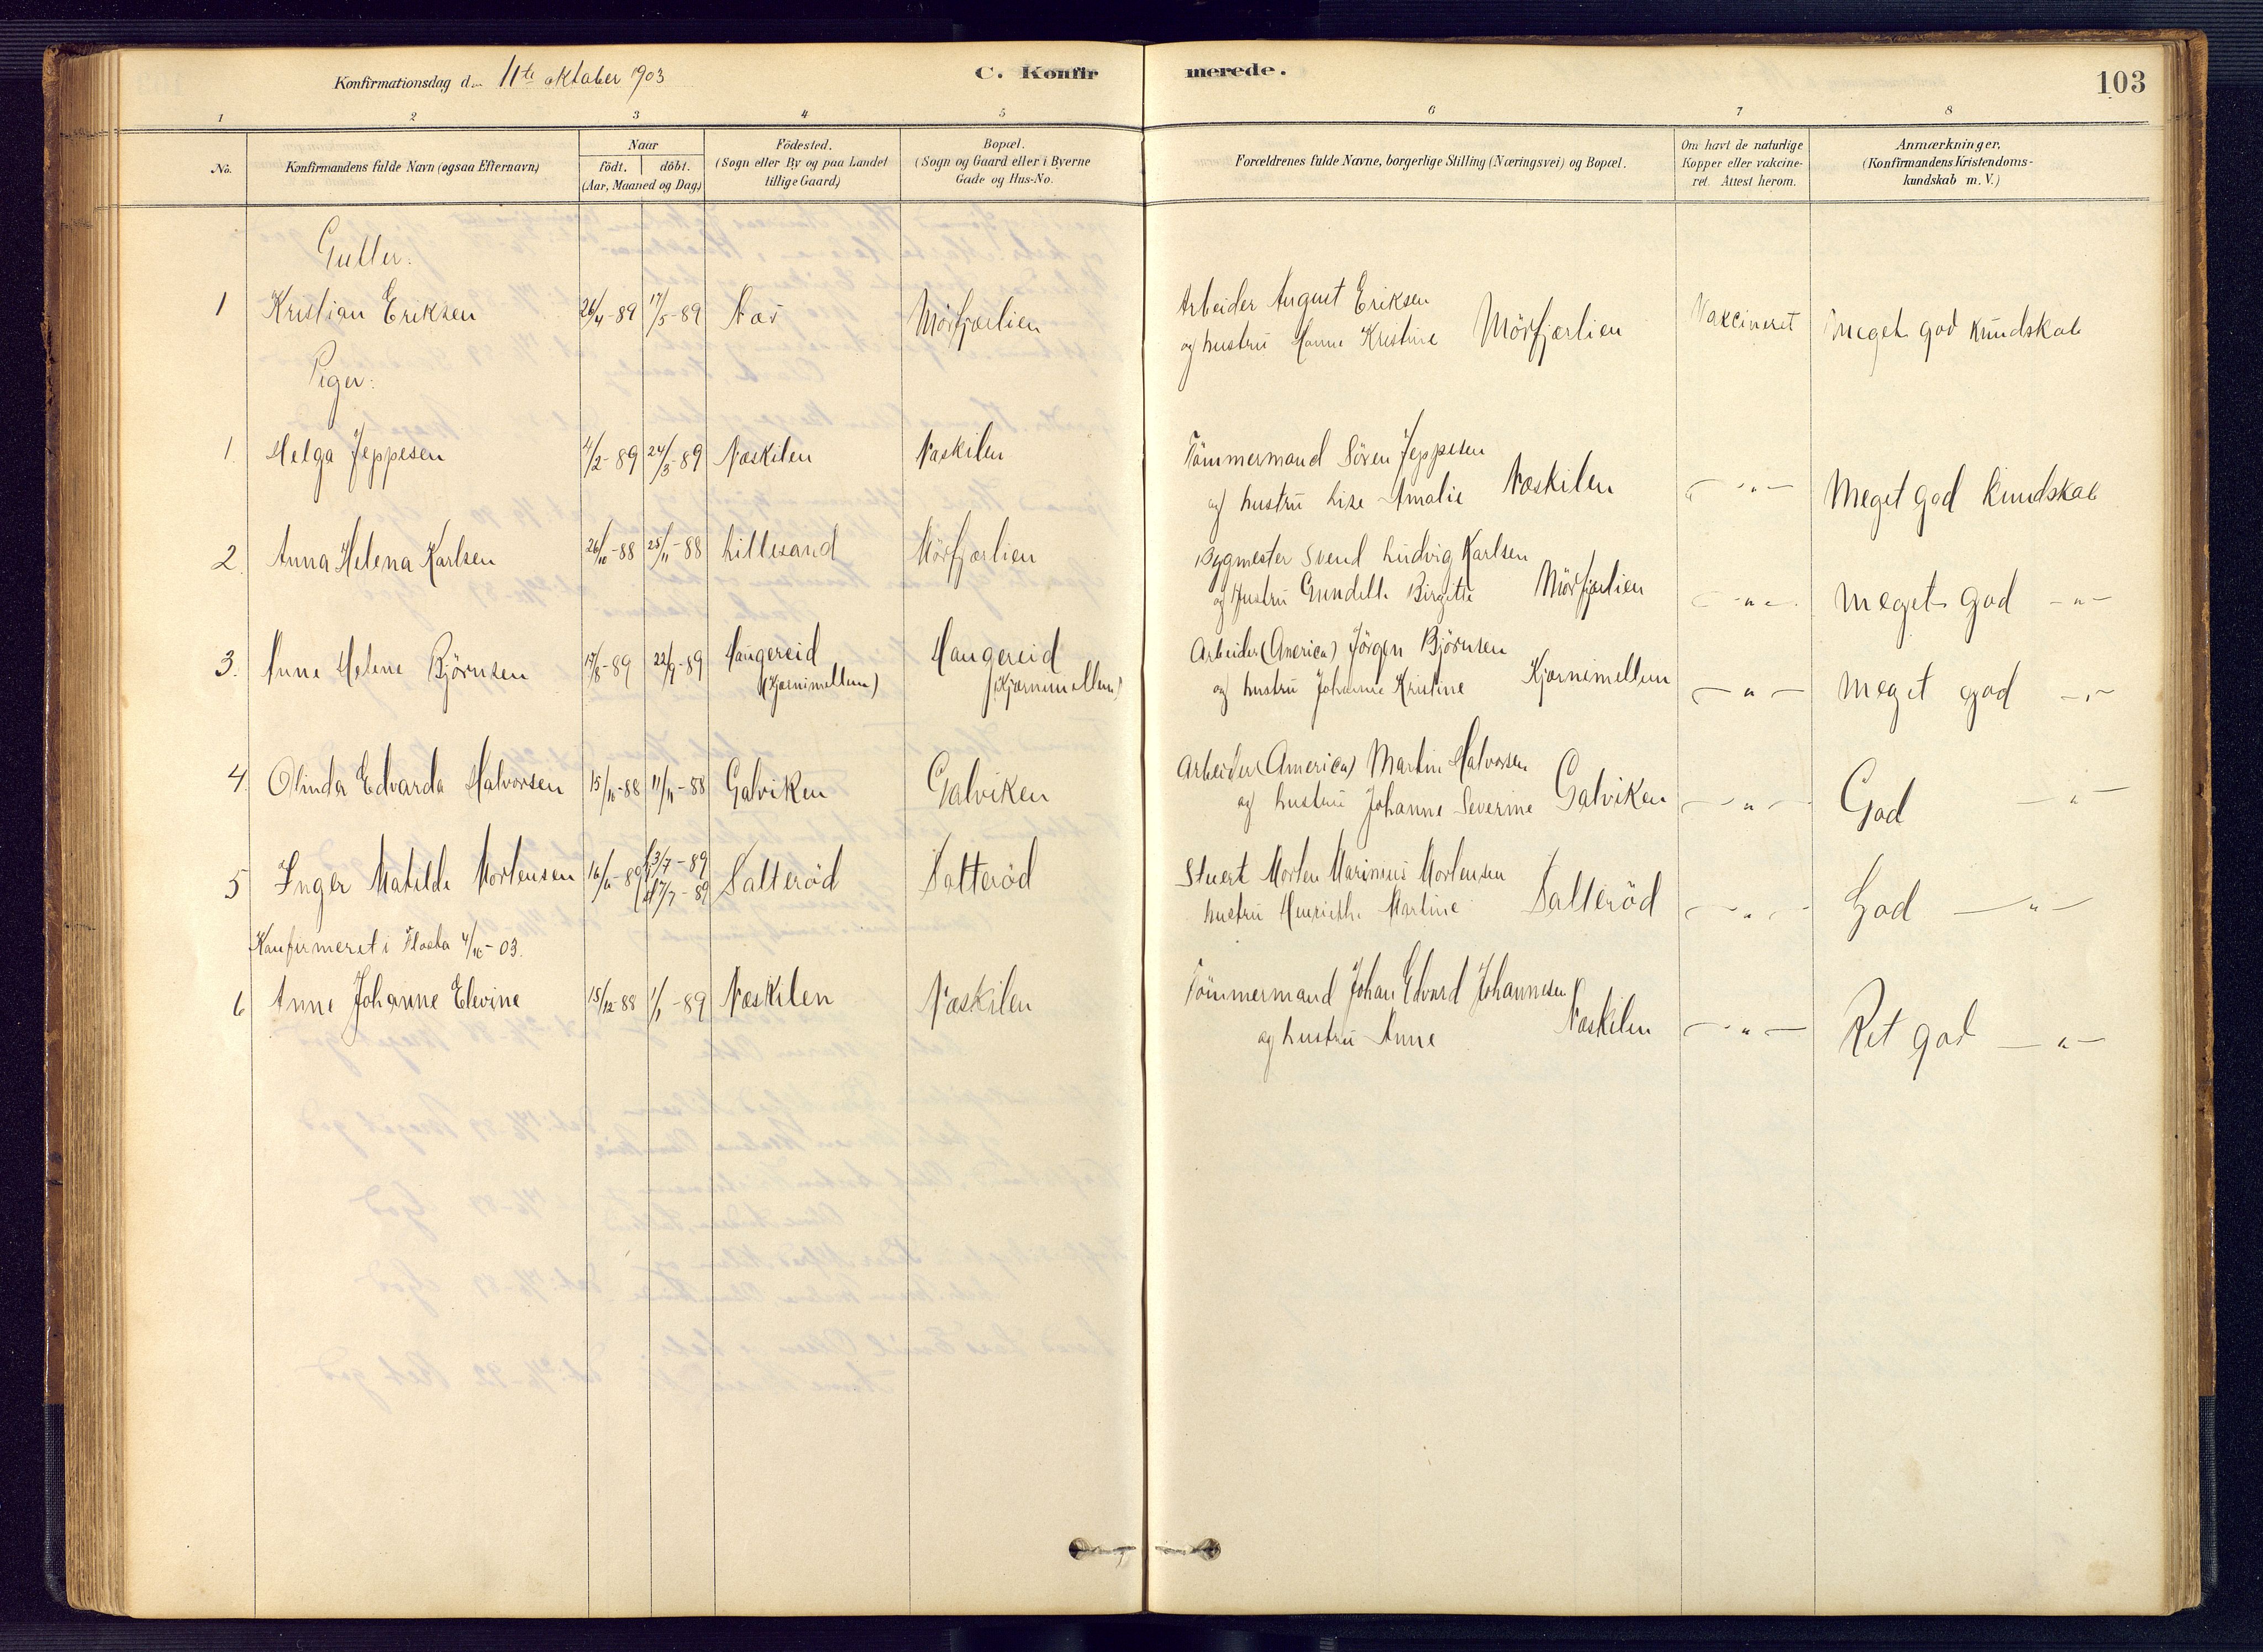 Konfirmationsdag d. 11te oktober 1903
C. Konfirmerede.
103
1 2 3 4 5 6 7 8
No.
Konfirmandens fulde Navn (ogsaa Efternavn)
Naar
födt. döbt.
(Aar, Maaned og Dag)
Födested.
(Sogn eller By og paa Landet
tillige Gaard)
Bopæl.
(Sogn og Gaard eller i Byerne
Gade og Hus-No.
Forældrenes fulde Navne, borgerlige Stilling (Næringsvei) og Bopæl.
Om havt de naturlige
Kopper eller vakcine-
ret. Attest herom.
Anmærkninger.
(Konfirmandens Kristendoms-
kundskab m. V.)
Gutter:
1 Kristian Eriksen 26/4-89 17/5-89 Mörfjærlien
Arbeider August Eriksen
og hustru Hanne Kristine Mörfjærlien Vaxcineret meget god kundskab
Piger:
1. Helga Jeppesen 4/2-89 24/3-89 Næskilen Næskilen
Tömmermand Sören Jeppesen
og hustru Lise Amalie Næskilen — " — Meget god kundskab
2. Anna Helena Karlsen 26/10-88 25/11-88 Lillesand Mörfjærlien
Bygmester Svend Ludvig Karlsen
og Hustru Gundelle Birgitte Mörfjærlien — " — meget god — " —
3. Anne Helene Björnsen 17/8-89 22/9-89 Haugereid
(Kjærnimellem)
Haugereid
(Kjærnimellem)
Arbeider (America) Jörgen Björnsen
og hustru Johanne Kristine Kjærnimellem — " — meget god — " —
4. Olinda Edvarda Halvorsen 15/10-88 11/11-88 Galviken Galviken
Arbeider (America) Martin Halvorsen
og hustru Johanne Severine Galviken — " — God — " —
5 Inger Matilde Mortensen 16/6-89 3/7-89
7/7-89
Salteröd Salteröd
Stuert Morten Marinius Mortensen
hustru Henriethe Martine Salteröd — " — God — " —
Konfirmeret i Flosta 4/10-03.
6 Anne Johanne Elevine 15/12-88 1/1-89 Næskilen Næskilen
Tömmermand Johan Edvard Johannesen
og hustru Anne Næskilen — " — Ret god — " —